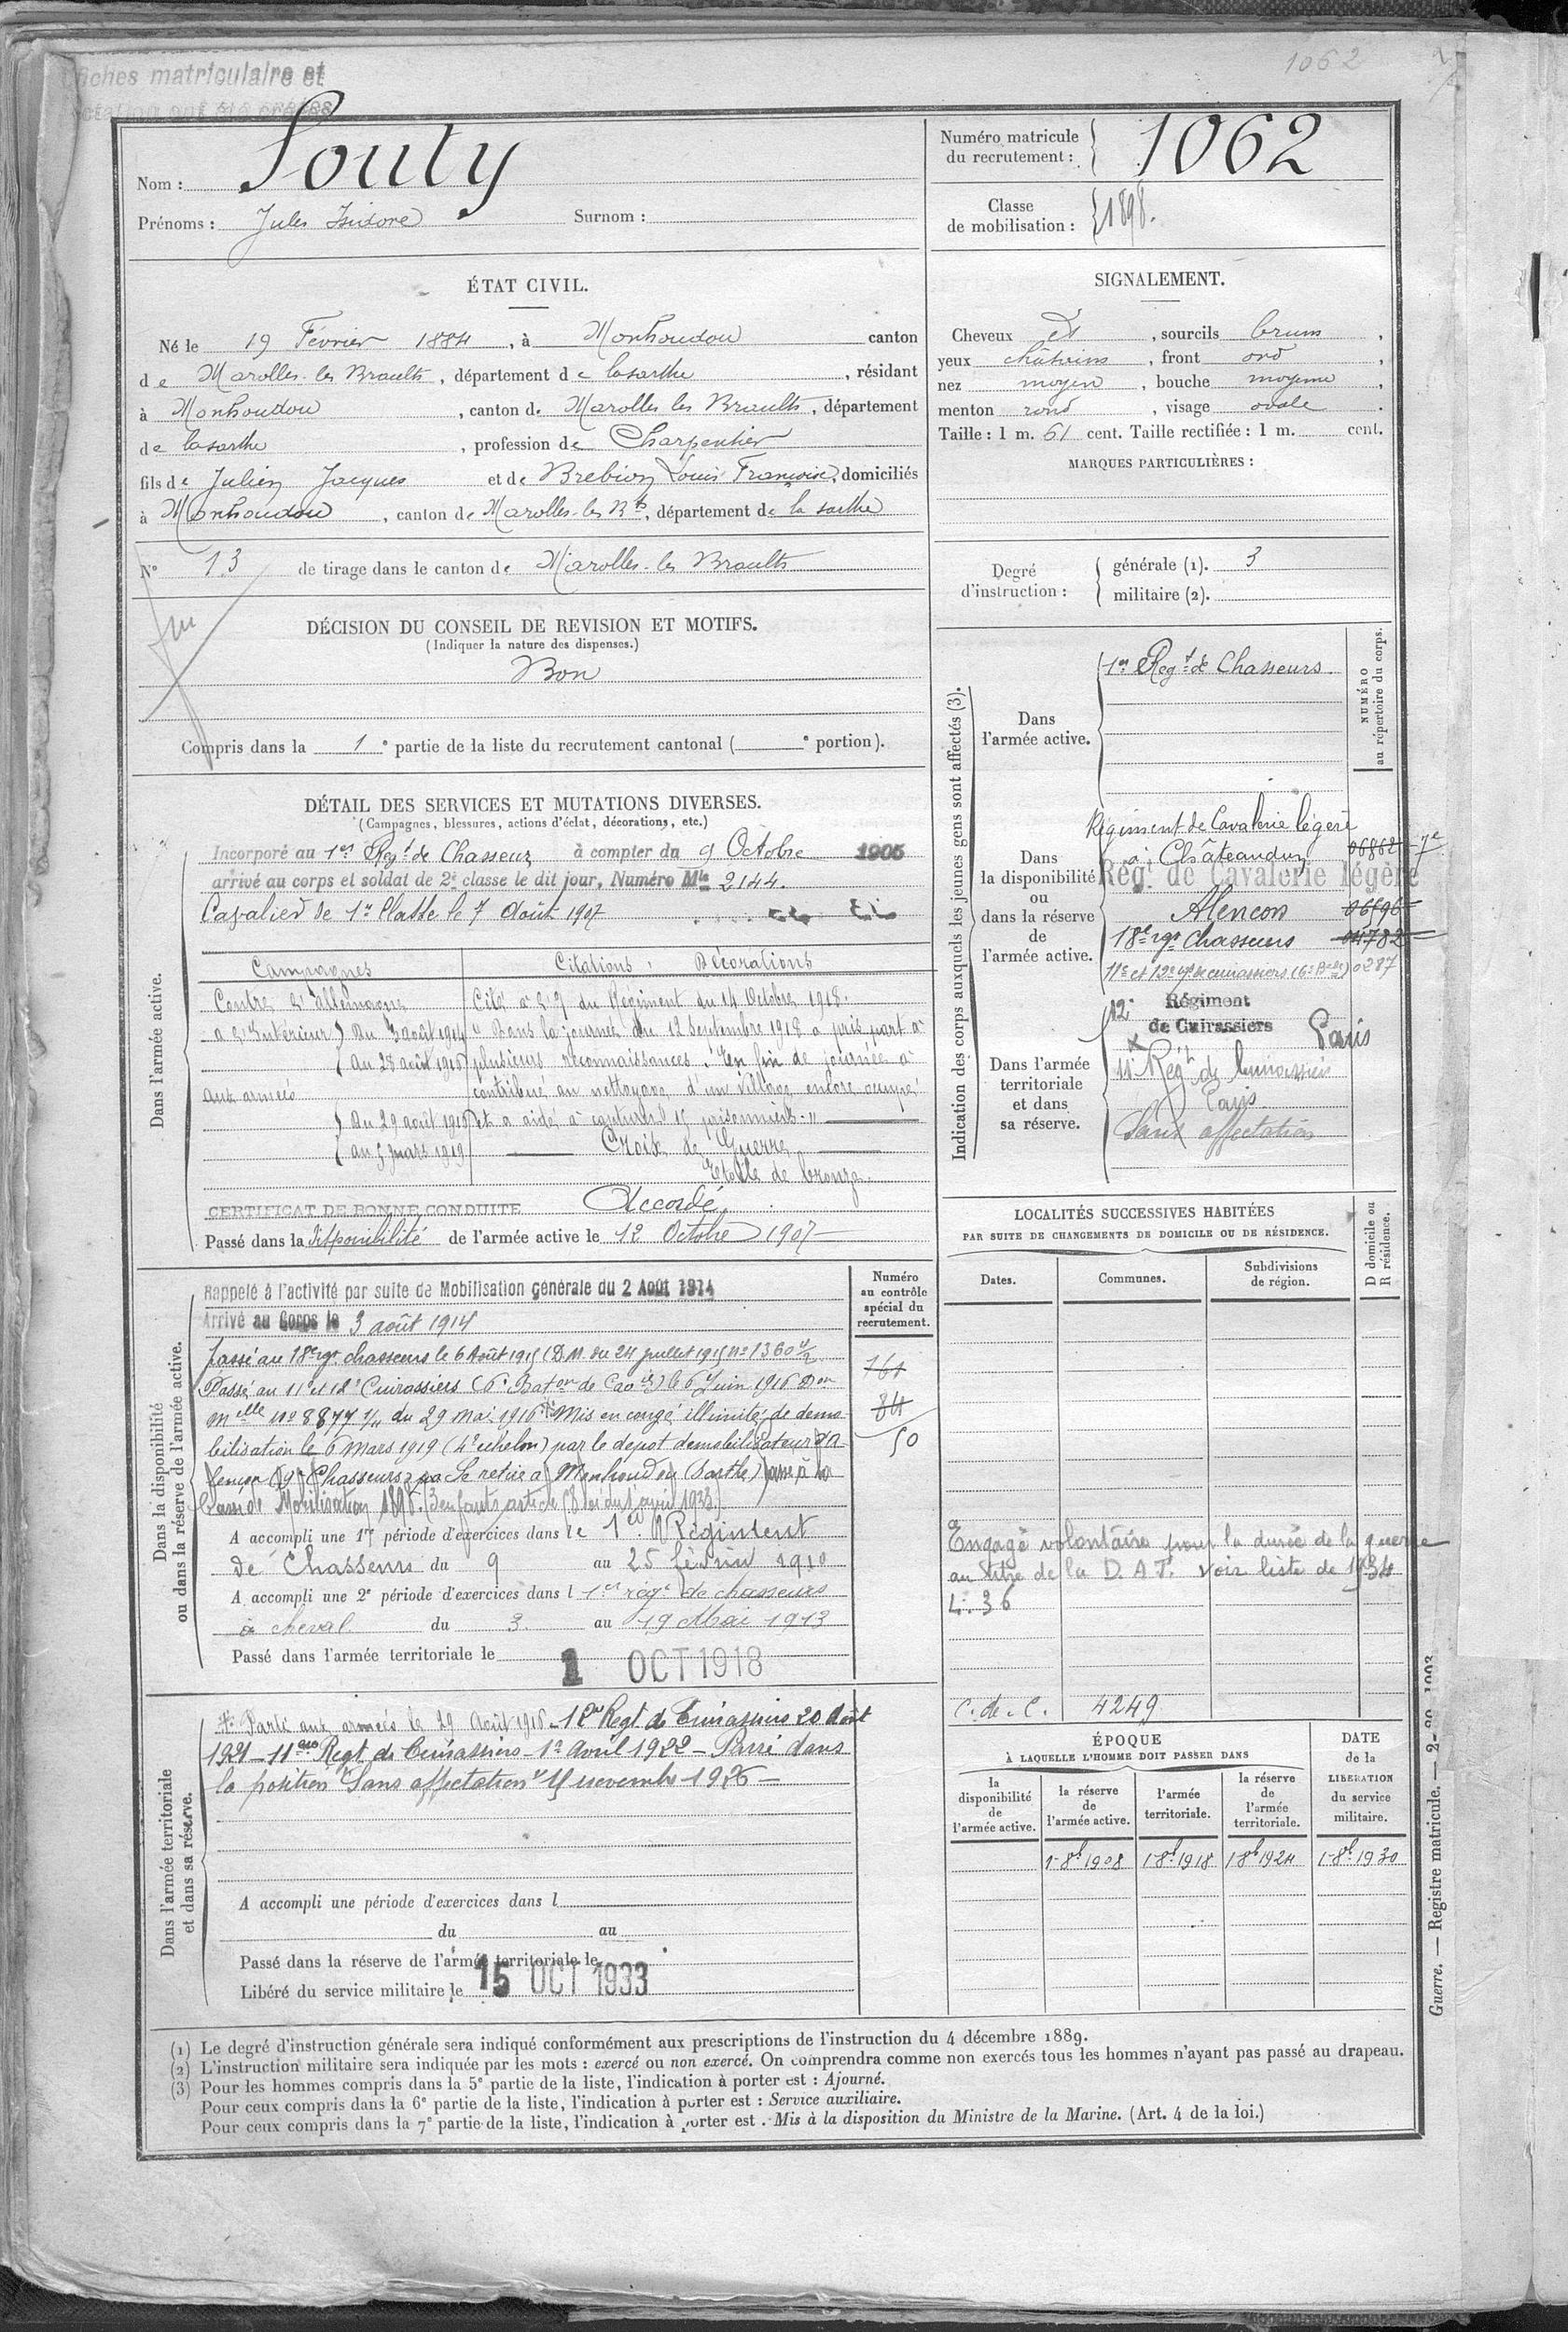 1062
fiches matriculaire et
Nom : Souty
Prénoms : Jules Isidore Surnom :
Numéro matricule
du recrutement : 1062
Classe
de mobilisation : 1898.
ÉTAT CIVIL.
Né le 19 Février 1884, à Monhoudou canton
de Marolles-les Braults, département de la Sarthe, résidant
à Monhoudou, canton de Marolles les Braults, département
de la Sarthe, profession de Charpentier
fils de Julien Jacques et de Brebion Louise Françoise, domiciliés
à Monhoudou, canton de Marolles-les Bts, département de la Sarthe
N° 13 de tirage dans le canton de Marolles-les Braults
DÉCISION DU CONSEIL DE REVISION ET MOTIFS.
(Indiquer la nature des dispenses.)
Bon
Compris dans la 1e partie de la liste du recrutement cantonal ( e portion).
SIGNALEMENT.
Cheveux et, sourcils bruns,
yeux châtains, front ord,
nez moyen, bouche moyenne,
menton rond, visage ovale.
Taille : 1 m. 61 cent. Taille rectifiée : 1 m. cent.
MARQUES PARTICULIÈRES :
Degré
d'instruction :
générale (1). 3
militaire (2).
DÉTAIL DES SERVICES ET MUTATIONS DIVERSES.
(Campagnes, blessures, actions d'éclat, décorations, etc.)
Dans l'armée active.
Incorporé au 1er Régt de Chasseurs à compter du 9 Octobre 1905
arrivé au corps et soldat de 2e classe le dit jour, Numéro Mle 2144.
Cavalier de 1re Classe le 7 Août 1907
Campagnes Citations, Décorations
Contre l'allemagne Cité à l'O du Régiment du 14 Octobre 1918.
a l'Intérieur) Du 3 août 1914 "Dans la journée du 12 Septembre 1918 a pris part à
au 28 août 1916 plusieurs reconnaissances. En fin de journée a
aux armées contribué au nettoyage d'un village encore occupé
Du 29 août 1916 et a aidé à capturer 15 prisonniers."
au 5 mars 1919 Croix de Guerre
Etoile de bronze.
CERTIFICAT DE BONNE CONDUITE Accordé.
Passé dans la disponibilité de l'armée active le 12 Octobre 1907
Dans la disponibilité
ou dans la réserve de l'armée active.
Numéro
au contrôle
spécial du
recrutement.
Rappelé à l'activité par suite de Mobilisation générale du 2 Août 1914
Arrivé au Corps le 3 août 1914
passé au 18e rgt chasseurs le 6 Août 1915 (DM. du 24 juillet 1915 No 1360 1/2
161
Passé au 11e et 12e Cuirassiers (6e Baton de Cavie) le 6 Juin 1916 Don
Melle No 8877 1/11 du 29 mai 1916 Mis en congé illimité de démo
84
bilisation le 6 Mars 1919 (4e échelon) par le depot demobilisateur d'A
50
lençon Chasseurs Se retire a Monhoudou (Sarthe) passé à la
Classe de Mobilisation 1898. (3 enfants article 58 loi du 1er avril 1923.)
A accompli une 1re période d'exercices dans le 1er Régiment
de Chasseurs du 9 au 25 Février 1910
A accompli une 2e période d'exercices dans l 1er régt de chasseurs
à cheval du 3 au 19 Mai 1913
Passé dans l'armée territoriale le 1 OCT 1918
Dans l'armée territoriale
et dans sa réserve.
Parti aux armées le 29 Août 1916. 12e Regt de Cuirassiers 20 Août
1921 - 11eme Regt de Cuirassiers - 1er Avril 1922 - Passé dans
la position "Sans affectation" 15 novembre 1926 -
A accompli une période d'exercices dans l
du au
Passé dans la réserve de l'armée territoriale le
Libéré du service militaire le 15 OCT 1933
Indication des corps auxquels les jeunes gens sont affectés (3).
NUMÉRO
au répertoire du corps.
Dans
l'armée active.
1er Régt de Chasseurs.
Dans
la disponibilité
ou
dans la réserve
de
l'armée active.
Régiment de Cavalerie légère
à Châteaudun 06862 7e
Régt de Cavalerie légère
Alençon 06596
18e rgt Chasseurs 04782
11e et 12e rgt de cuirassiers (6e Bie) 0287
Dans l'armée
territoriale
et dans
sa réserve.
12e Régiment
de Cuirassiers Paris
11e Régt de Cuirassiers
Paris
Sans affectation
LOCALITÉS SUCCESSIVES HABITÉES
PAR SUITE DE CHANGEMENTS DE DOMICILE OU DE RÉSIDENCE.
D domicile ou
R résidence.
Dates. Communes. Subdivisions
de région.
Engagé volontaire pour la durée de la guerre
au titre de la D.A.T. voir liste de 1934
L. 36
C. de. C. 4249
ÉPOQUE
À LAQUELLE L'HOMME DOIT PASSER DANS
DATE
de la
LIBÉRATION
du service
militaire.
la
disponibilité
de
l'armée active.
la réserve
de
l'armée active.
l'armée
territoriale.
la réserve
de
l'armée
territoriale.
1-8bre 1908 1-8bre 1918 1 8bre 1924 1-8bre 1930
Guerre. — Registre matricule. — 2-20 1903
(1) Le degré d'instruction générale sera indiqué conformément aux prescriptions de l'instruction du 4 décembre 1889.
(2) L'instruction militaire sera indiquée par les mots : exercé ou non exercé. On comprendra comme non exercés tous les hommes n'ayant pas passé au drapeau.
(3) Pour les hommes compris dans la 5e partie de la liste, l'indication à porter est : Ajourné.
Pour ceux compris dans la 6e partie de la liste, l'indication à porter est : Service auxiliaire.
Pour ceux compris dans la 7e partie de la liste, l'indication à porter est : Mis à la disposition du Ministre de la Marine. (Art. 4 de la loi.)